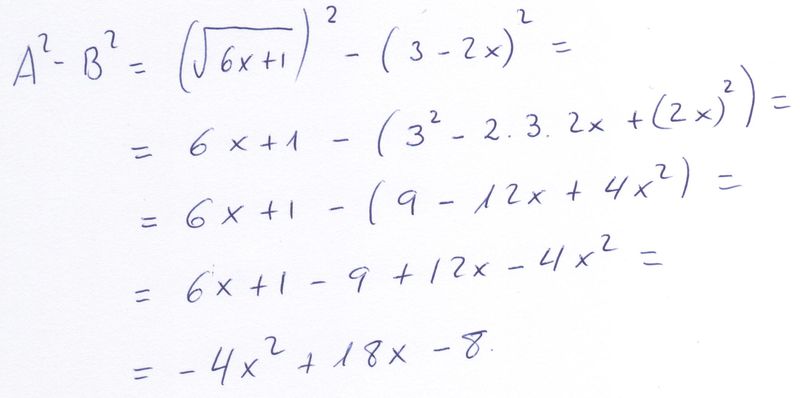 A² - B² = (√(6x+1))² - (3 - 2x)² =
= 6x+1 - (3² - 2.3.2x + (2x)²) =
= 6x+1 - (9 - 12x + 4x²) =
= 6x+1 - 9 + 12x - 4x² =
= -4x² + 18x - 8.